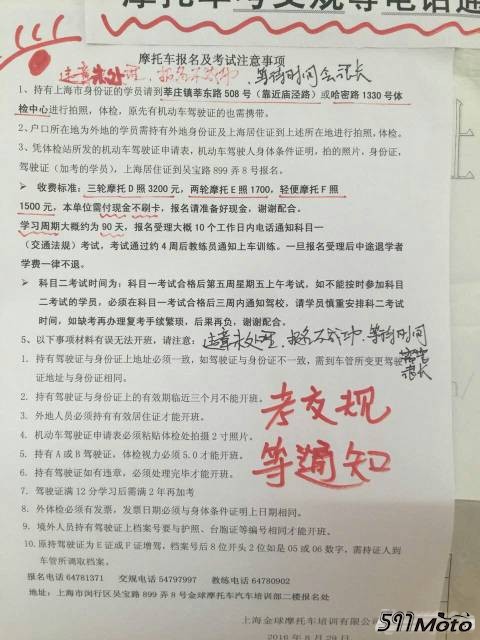 摩托车考交规等电话通
摩托车报名及考试注意事项
违章未处理,报名不成功,等待时间会很长
1、持有上海市身份证的学员请到莘庄镇莘东路 508 号(靠近庙泾路)或哈密路 1330 号体
检中心进行拍照,体检,原先有机动车驾驶证的也需携带。
2、户口所在地为外地的学员需持有外地身份证及上海居住证到上述所在地进行拍照,体检。
3、凭体检站所发的机动车驾驶证申请表,机动车驾驶人身体条件证明,拍的照片,身份证,
驾驶证(加考的学员),上海居住证到吴宝路 899 弄 8 号报名。
➢ 收费标准:三轮摩托 D 照 3200 元,两轮摩托 E 照 1700,轻便摩托 F 照
1500 元,本单位需付现金不刷卡,报名请准备好现金,谢谢配合。
学习周期大概约为 90 天,报名受理大概 10 个工作日内电话通知科目一
(交通法规)考试,考试通过约 4 周后教练员通知上车训练。一旦报名受理后中途退学者
学费一律不退。
➢ 科目二考试时间为:科目一考试合格后第五周星期五上午考试,如不能按时参加科目
二考试的学员,必须在科目一考试合格后三周内通知驾校,请学员慎重安排科二考试
时间,如缺考再办理复考手续繁琐,后果再负,谢谢配合。
5、以下事项材料有误无法开班,请注意:违章未处理,报名不成功,等待时间
会很长
1. 持有驾驶证与身份证上地址必须一致,如驾驶证与身份证不一致,需到车管所变更驾驶
证地址与身份证相同。
2. 持有驾驶证与身份证上的有效期临近三个月不能开班。
3. 外地人员必须持有有效居住证才能开班。
4. 机动车驾驶证申请表必须粘贴体检处拍摄 2 寸照片。
5. 持有 A 或 B 驾驶证,体检视力必须 5.0 才能开班。
6. 持有驾驶证如有违章,必须处理完毕才能开班。
7. 驾驶证满 12 分学习后需满 2 年再加考
8. 外体检必须有发票,发票日期必须与身体条件证明上日期相同。
9. 境外人员持有驾驶证上档案号要与护照、台胞证等编号相同才能开班。
10. 原持驾驶证为 E 证或 F 证增驾,档案号后 8 位开头 2 位如是 05 或 06 数字,需持证人到
车管所调取档案。
考交规
等通知
报名电话 64781371 交规电话 54797997 教练电话 64780902
地址:上海市闵行区吴宝路 899 弄 8 号金球摩托车汽车培训部二楼报名处
上海金球摩托车培训有限公
2016 年 8 月 29 日
591Moto